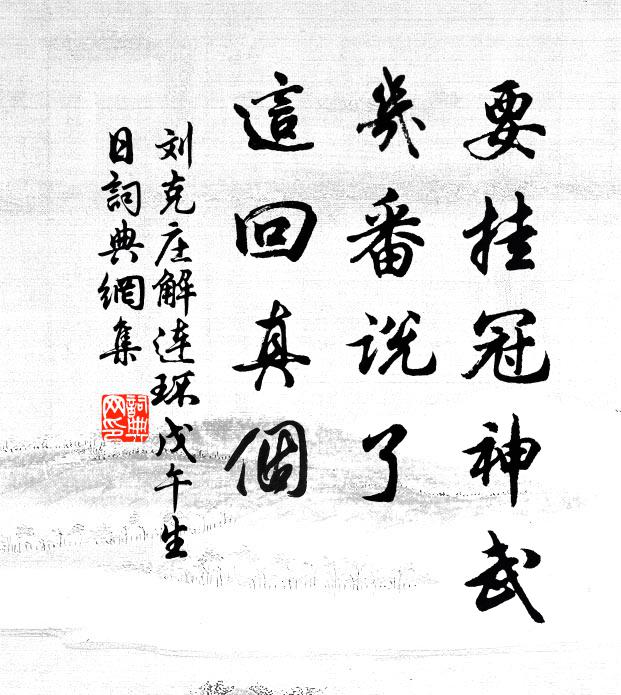 要挂冠神武
幾番説了
這回真個
刘克庄解連环戊午生
日詞典網集
詞典
网印